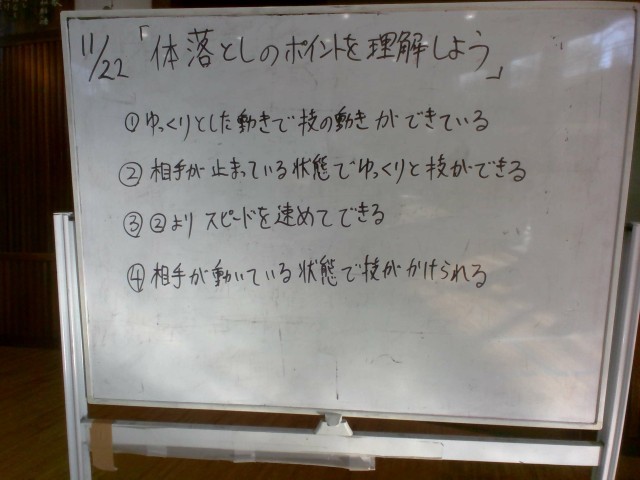 11/22「体落としのポイントを理解しよう」
①ゆっくりとした動きで技の動きができている
②相手が止まっている状態でゆっくりと技ができる
③②よりスピードを速めてできる
④相手が動いている状態で技がかけられる